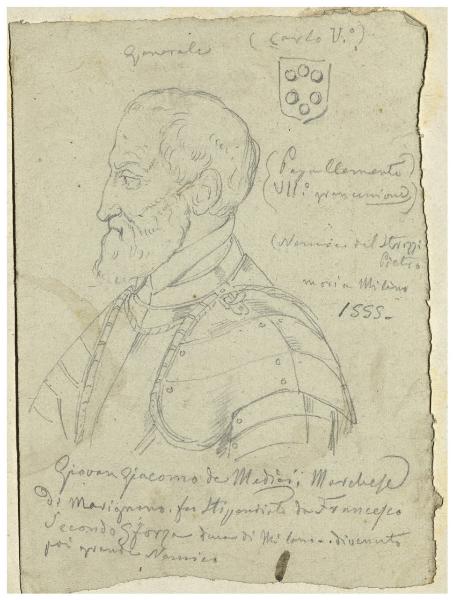 Generale (Carlo V.º)
(Papa Clemente
VII.º
(Nemico del Strozzi
Pietro
mori a Milano
1555.
Giovan Giacomo de Medici; Marchese
Di Marignano. fu Stipendiato da Francesco
Secondo Sforza duca di Milano. divenuto
poi grande Nemico